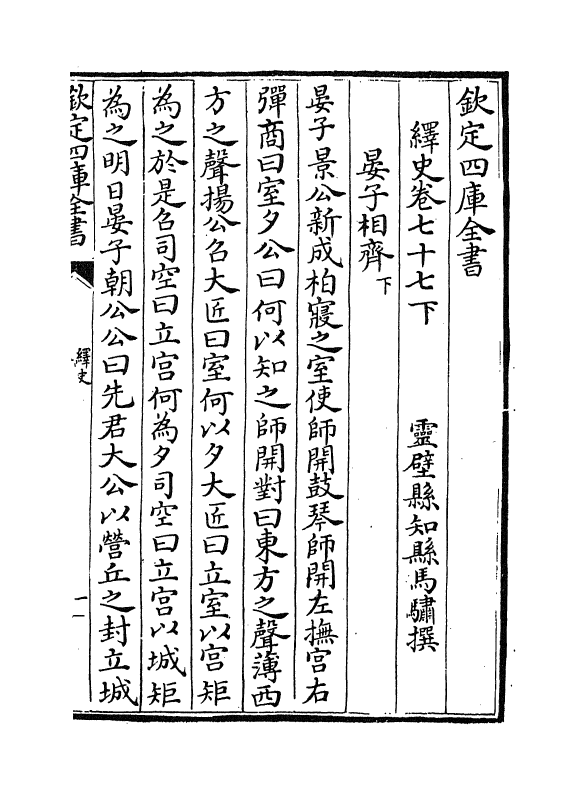 欽定四庫全書
繹史卷七十七下
靈壁縣知縣馬驌撰
晏子相齊下
晏子景公新成柏寢之室使師開鼓琴師開左撫宮右
彈商曰室夕公曰何以知之師開對曰東方之聲薄西
方之聲揚公召大匠曰室何以夕大匠曰立室以宮矩
為之於是召司空曰立宮何為夕司空曰立宮以城矩
為之明日晏子朝公公曰先君大公以營丘之封立城
欽定四庫全書
繹史
一